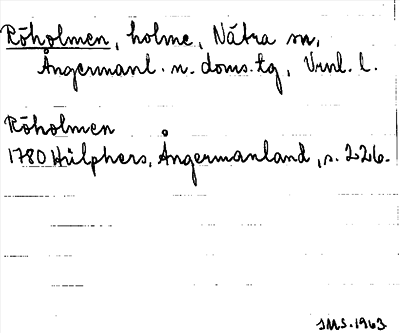 Röholmen, holme, Nätra sn,
Ångermanl. n. doms.tg, Vrnl. l.
Röholmen
1780 Hülphers, Ångermanland, s. 226.
SMS. 1963